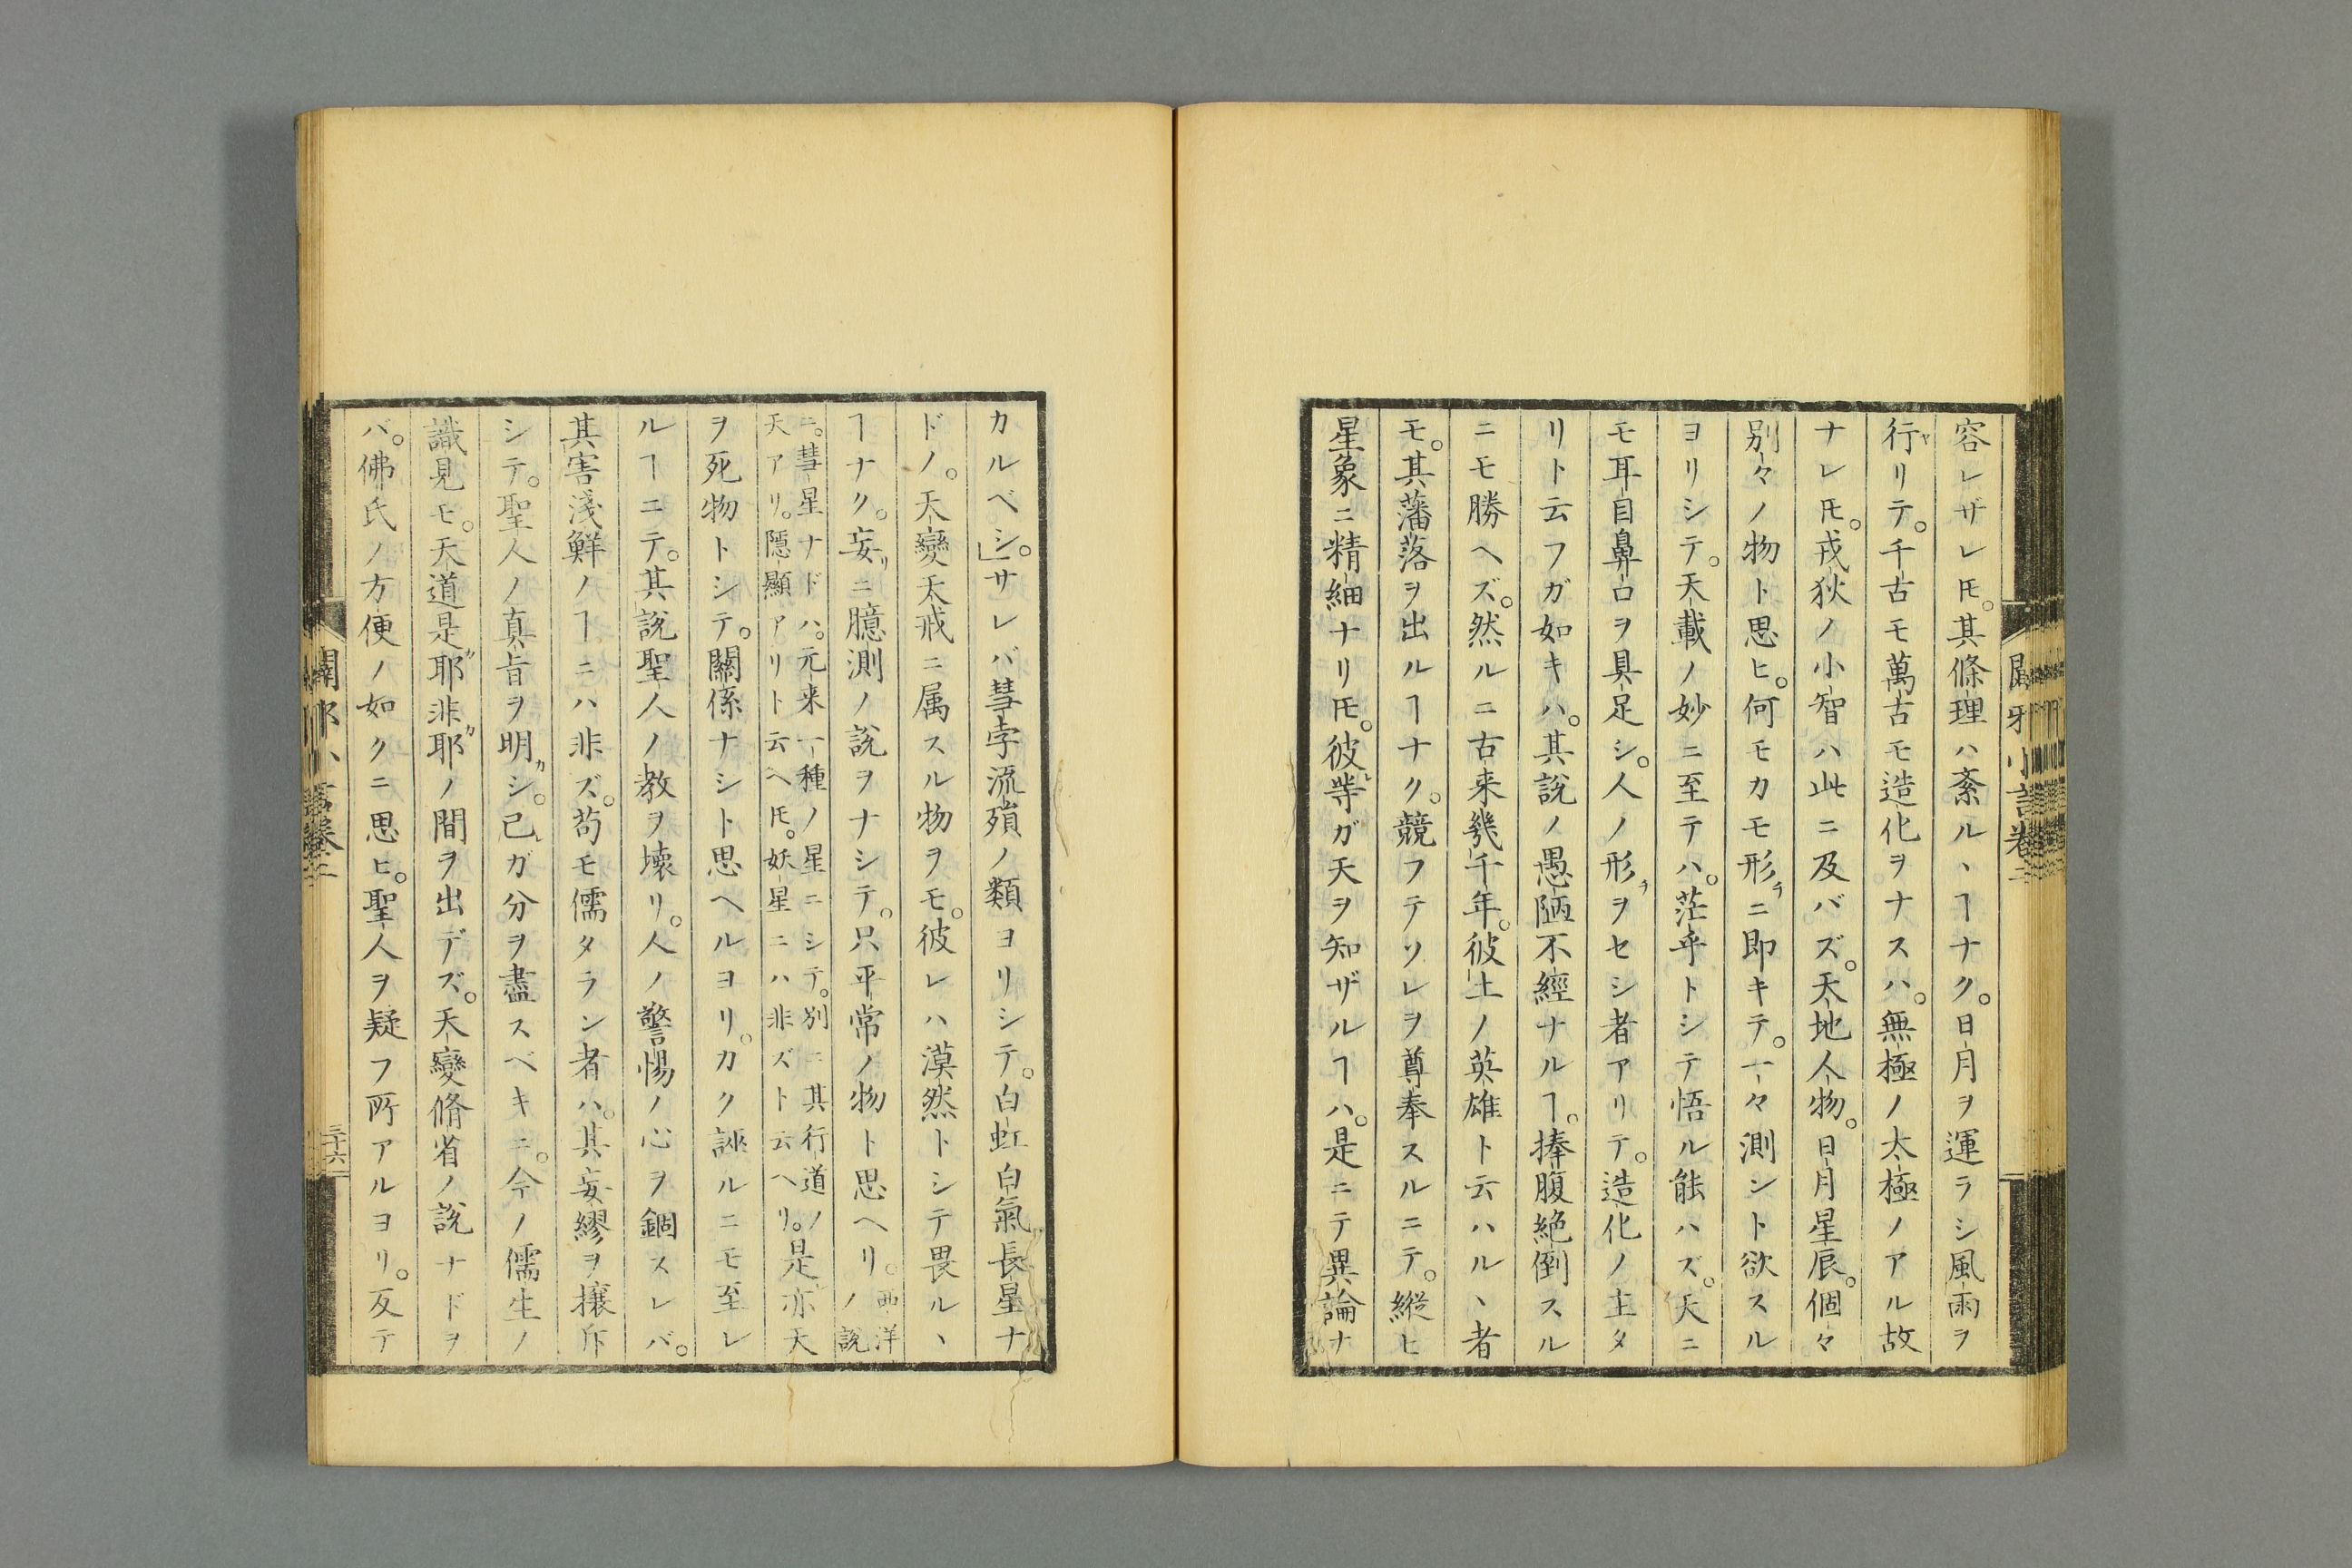 容レザレ𪜈。其條理ハ紊ル、ヿナク。日月ヲ運ラシ風雨ヲ
行ヤリテ。千古モ萬古モ造化ヲナスハ。無極ノ太極ノアル故
ナレ𪜈。戎狄ノ小智ハ此ニ及バズ。天地人物。日月星辰。個々
別々ノ物ト思ヒ。何モカモ形ヂニ即キテ。一々測ント欲スル
ヨリシテ。天載ノ妙ニ至テハ。茫乎トシテ悟ル能ハズ。天ニ
モ耳目鼻口ヲ具足シ。人ノ形ヲセシ者アリテ。造化ノ主タ
リト云フガ如キハ。其說ノ愚陋不經ナルヿ。捧腹絶倒スル
ニモ勝ヘズ。然ルニ古来幾千年。彼土ノ英雄ト云ハル、者
モ。其藩落ヲ出ルヿナク。競フテソレヲ尊奉スルニテ。縱ヒ
星象ニ精細ナリ𪜈。彼等ガ天ヲ知ザルヿハ。是ニテ異論ナ
カルベシ。」サレバ彗孛流殞ノ類ヨリシテ。白虹白氣長星ナ
ドノ。天變天戒ニ属スル物ヲモ。彼レハ漠然トシテ畏ル、
ヿナク。妄リニ臆測ノ說ヲナシテ。只平常ノ物ト思ヘリ。西洋ノ說
ニ。彗星ナドハ。元来一種ノ星ニシテ。別ニ其行道ノ
天アリ。隱顯アリト云ヘ𪜈。妖星ニハ非ズト云ヘリ。是亦天
ヲ死物トシテ。關係ナシト思ヘルヨリ。カク誣ルニモ至レ
ルヿニテ。其說聖人ノ教ヲ壞リ。人ノ警惕ノ心ヲ錮スレバ。
其害淺鮮ノヿニハ非ズ。苟モ儒タラン者ハ。其妄繆ヲ攘斥
シテ。聖人ノ真旨ヲ明カシ。己ガ分ヲ盡スベキニ。今ノ儒生ノ
識見モ。天道是耶カ非耶カノ間ヲ出デズ。天變脩省ノ說ナドヲ
バ。佛氏ノ方便ノ如クニ思ヒ。聖人ヲ疑フ所アルヨリ。反テ
三十六